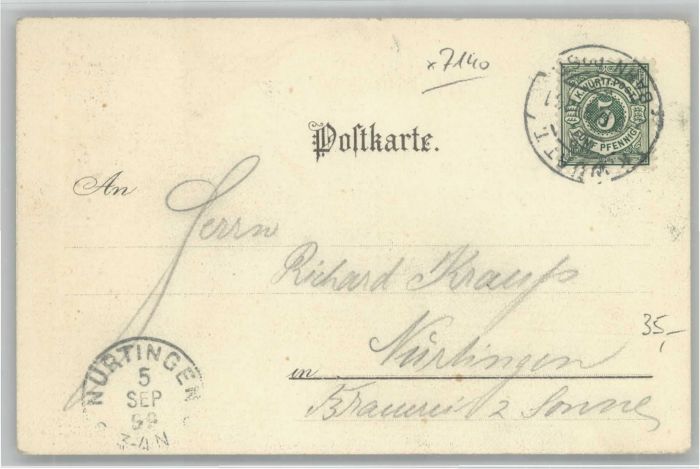 x7140
K.WÜRTT.POST
5
FÜNF PFENNIG
Postkarte.
An
Herrn
Richard Krauß
35,-
Nürtingen
in
Brauerei z Sonne
NÜRTINGEN
5
SEP
3-4N